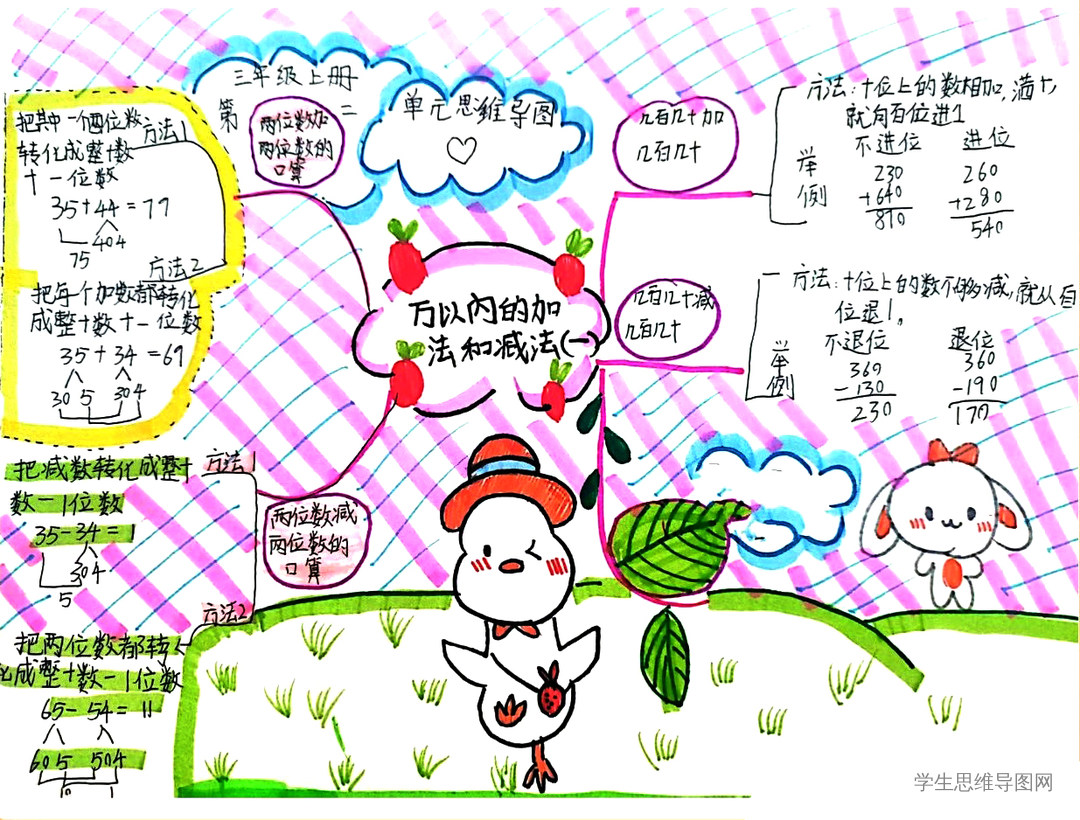 三年级上册
第二
单元思维导图
万以内的加
法和减法(一)
两位数加
两位数的
口算
方法1
把其中一个两位数
转化成整十数
十一位数
35+44=79
40 4
75
方法2
把每个加数都转化
成整十数十一位数
35+34=69
30 5 30 4
两位数减
两位数的
口算
方法1
把减数转化成整十
数一1位数
35-34=1
30 4
5
方法2
把两位数都转
化成整十数一1位数
65-54=11
60 5 50 4
几百几十加
几百几十
方法:十位上的数相加,满十,
就向百位进1
举例
不进位
230
+640
870
进位
260
+280
540
几百几十减
几百几十
方法:十位上的数不够减,就从百
位退1。
举例
不退位
360
-130
230
退位
360
-190
170
学生思维导图网